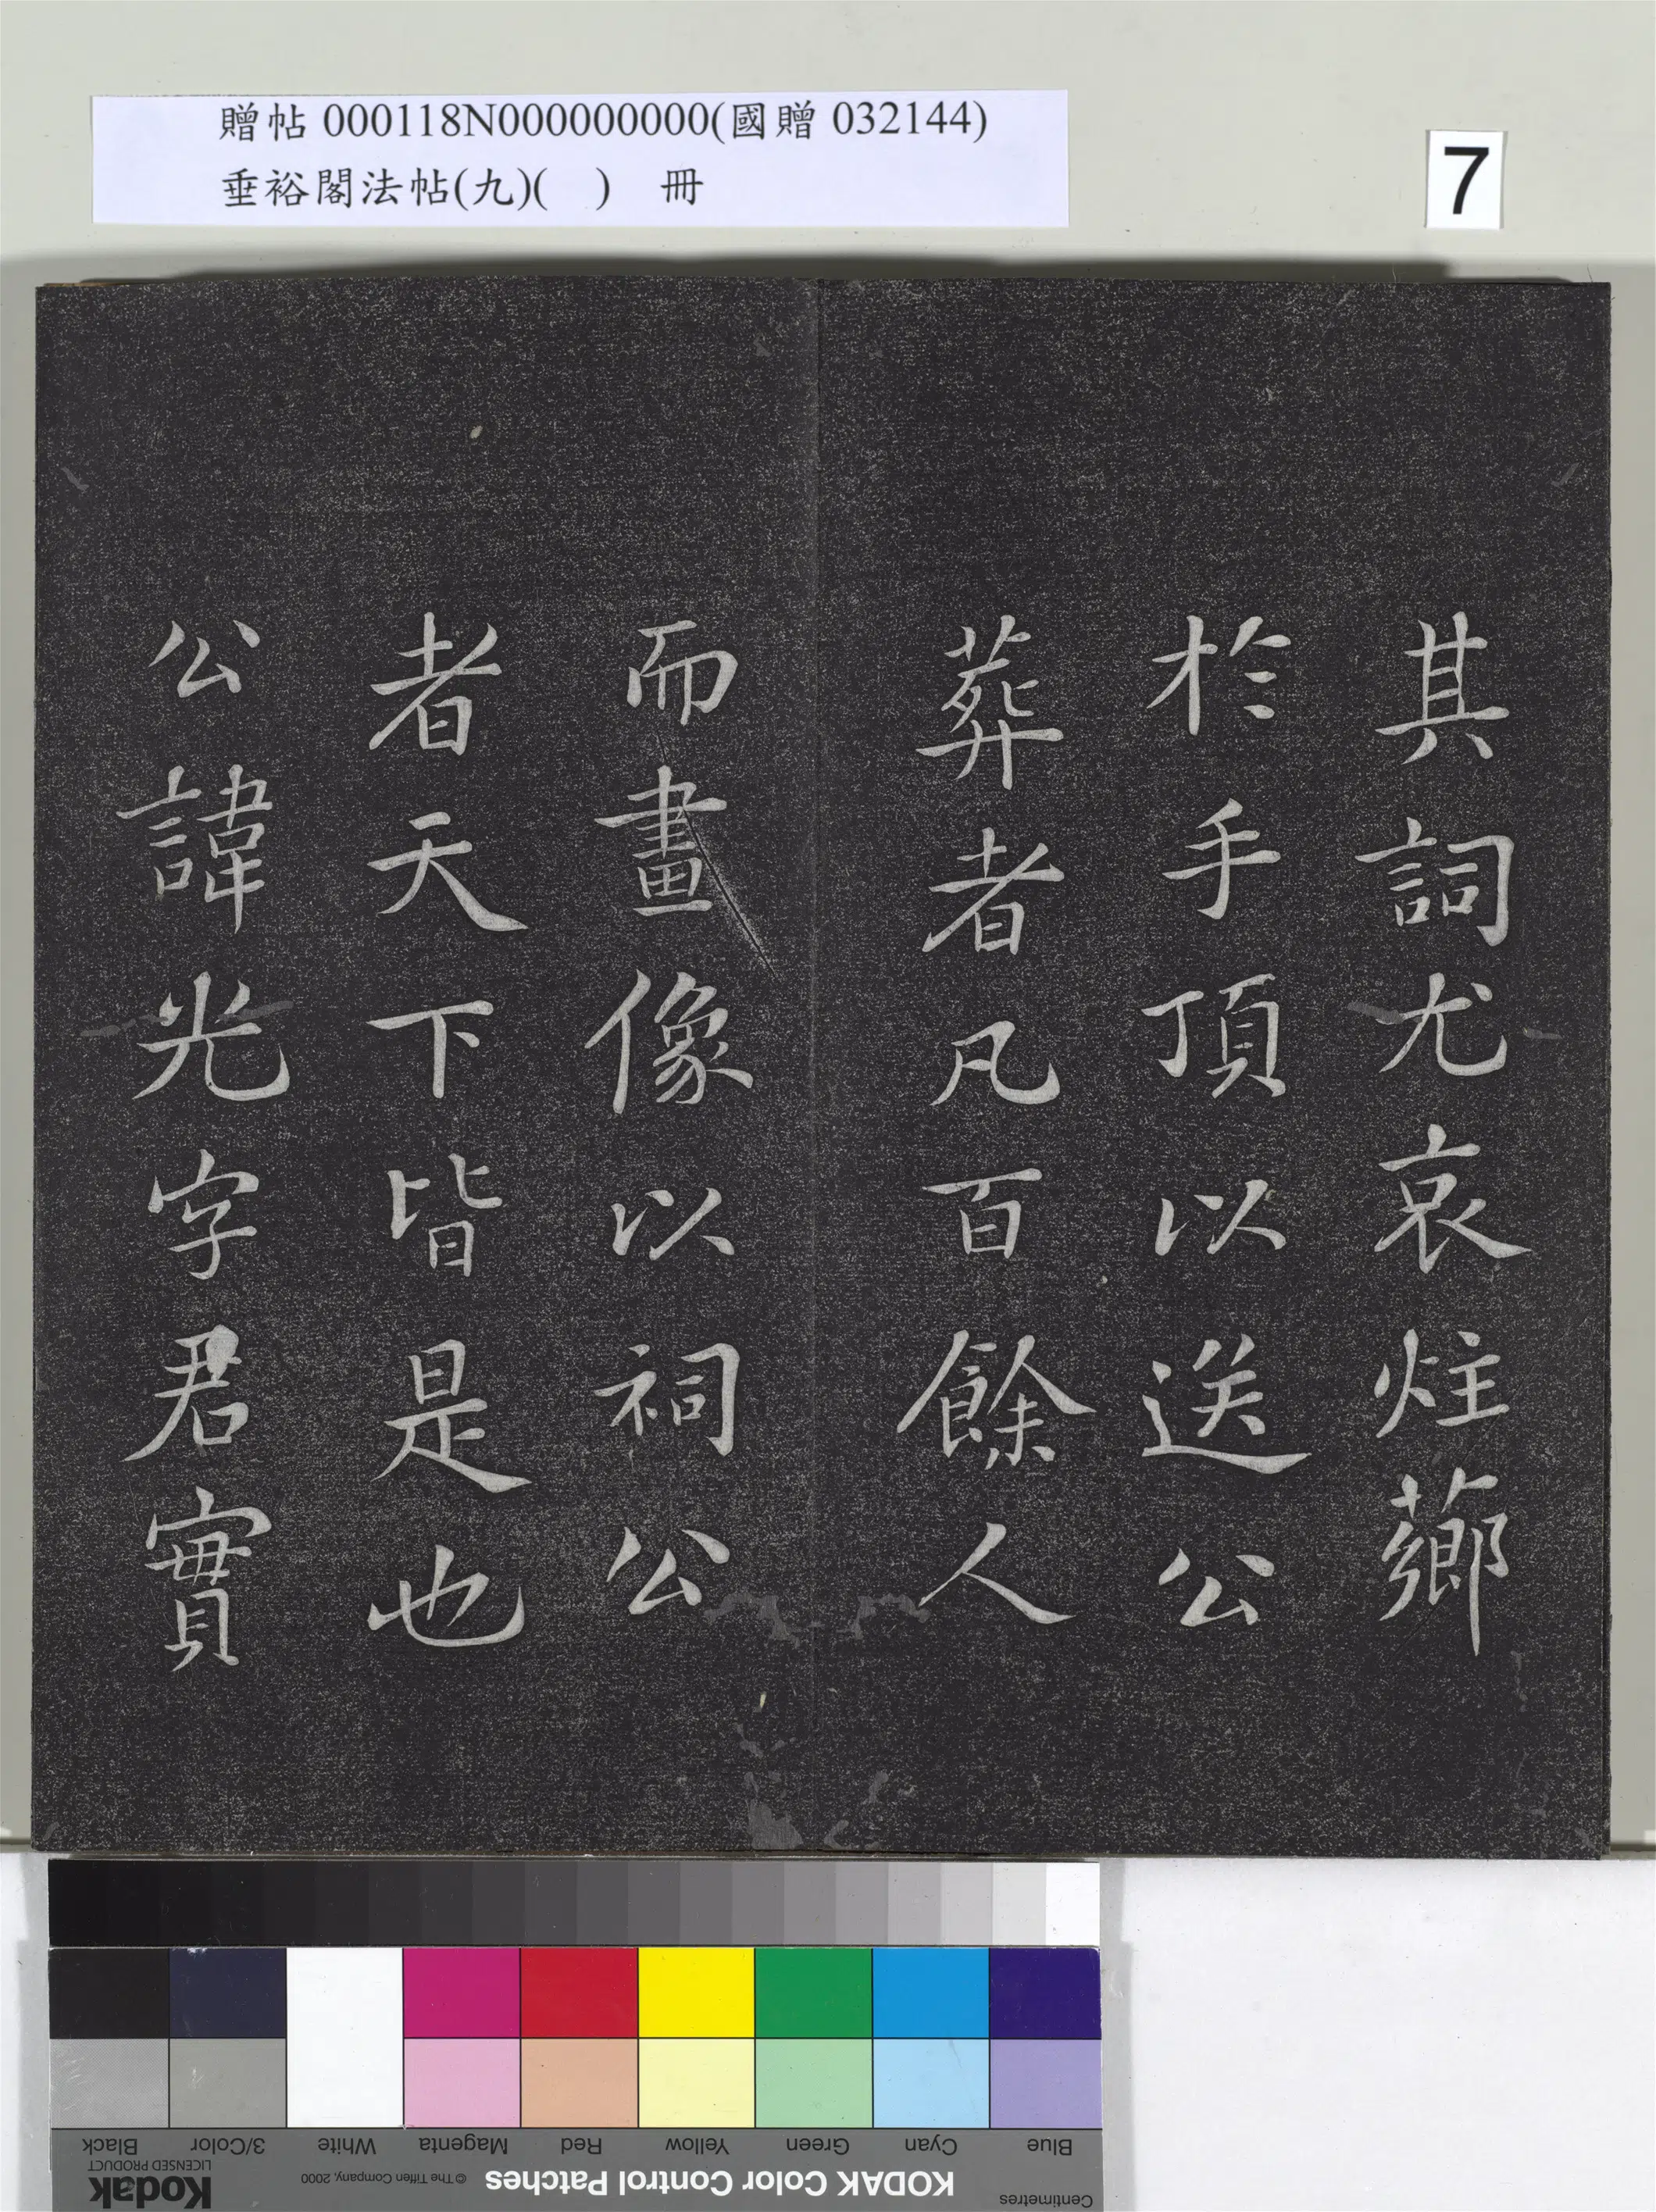 贈帖 000118N000000000(國贈 032144)
垂裕閣法帖(九)(　)　冊
7
其詞尤哀炷薌
於手頂以送公
葬者凡百餘人
而畫像以祠公
者天下皆是也
公諱光字君實
Black
3/Color
White
Magenta
Red
Yellow
Green
Cyan
Blue
Kodak
LICENSED PRODUCT
© The Tiffen Company, 2000
KODAK Color Control Patches
Centimetres